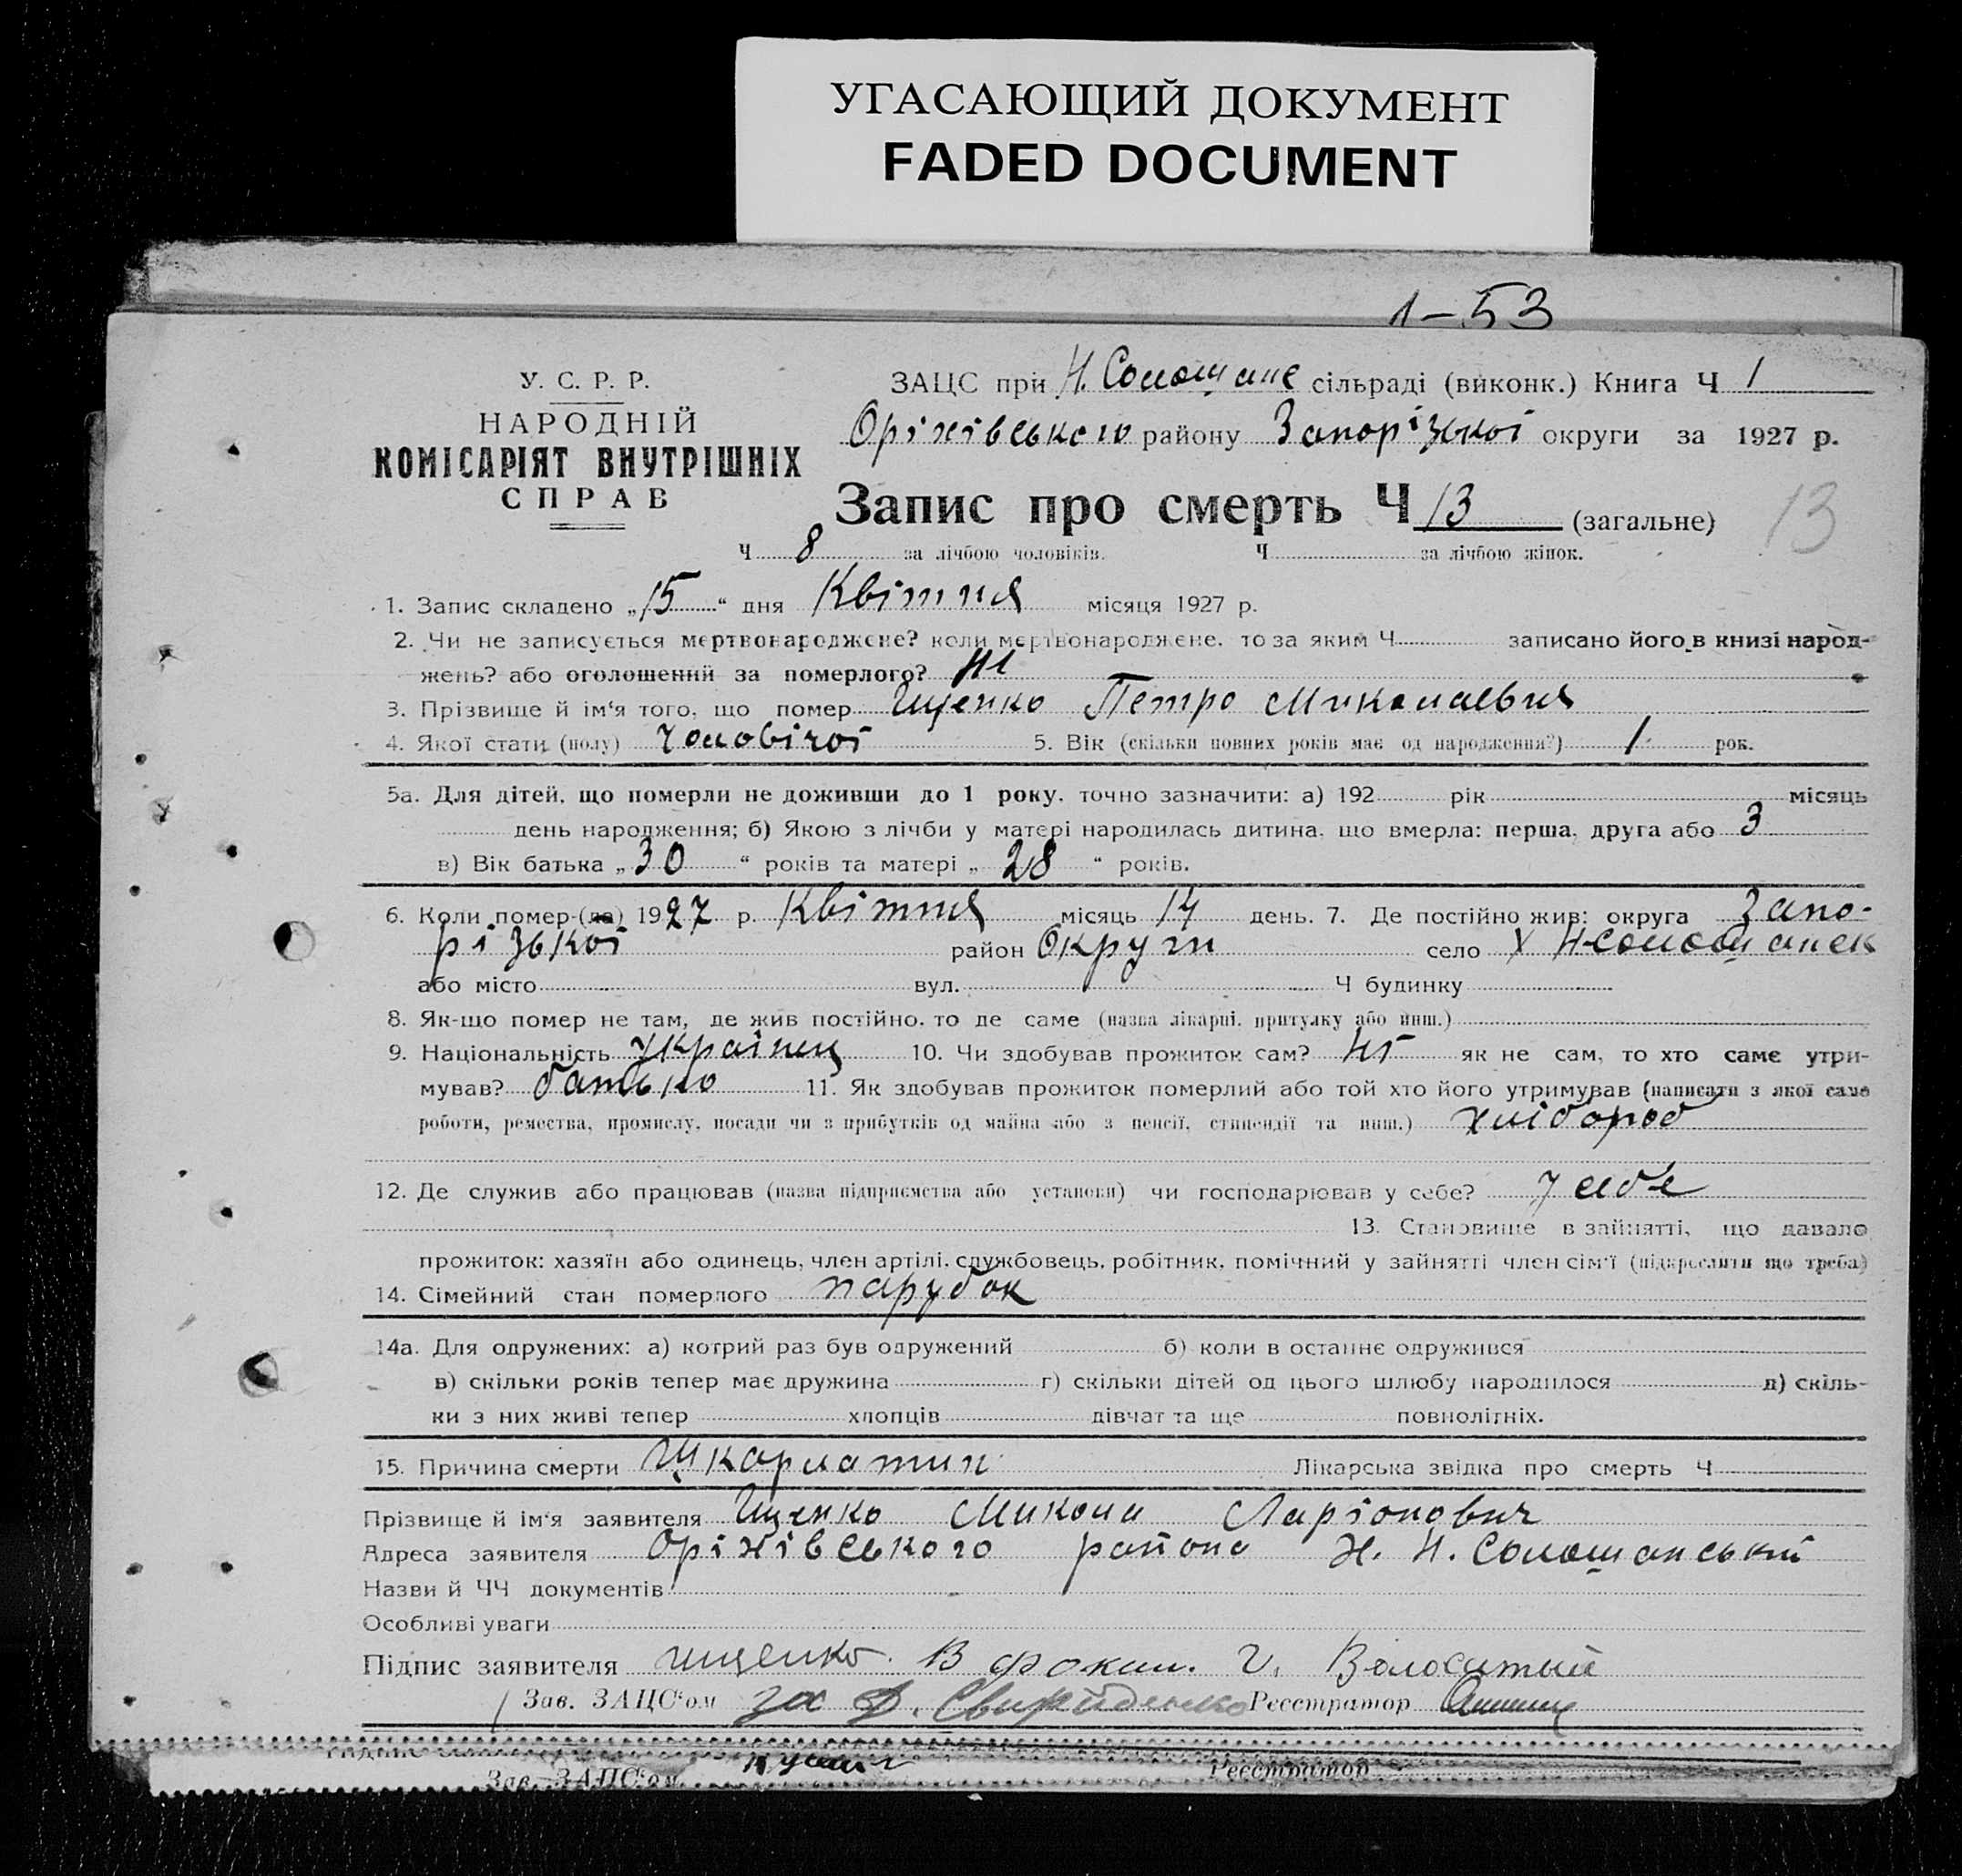 УГАСАЮЩИЙ ДОКУМЕНТ
FADED DOCUMENT
1–53
У. С. Р. Р.
НАРОДНІЙ
КОМІСАРІЯТ ВНУТРІШНІХ
СПРАВ
ЗАЦС при Н. Солошане сільраді (виконк.) Книга Ч 1
Оріхівського району Запорізької округи за 1927 р.
Запис про смерть Ч 13 (загальне) 13
Ч 8 за лічбою чоловіків. Ч за лічбою жінок.
1. Запис складено „15“ дня Квітня місяця 1927 р.
2. Чи не записується мертвонароджене? коли мертвонароджене, то за яким Ч записано його в книзі народ-
жень? або оголошений за померлого? Ні
3. Прізвище й ім'я того, що помер Іщенко Петро Миколаевич
4. Якої стати (полу) Чоловічої 5. Вік (скільки повних років має од народження?) 1 рок.
5а. Для дітей, що померли не доживши до 1 року, точно зазначити: а) 192 рік місяць
день народження; б) Якою з лічби у матері народилась дитина, що вмерла: перша, друга або 3
в) Вік батька „30“ років та матері „28“ років.
6. Коли помер-(ла) 1927 р. Квітня місяць 14 день. 7. Де постійно жив: округа Запо-
різької район Округи село Х Н-Солошанск
або місто вул. Ч будинку
8. Як-що помер не там, де жив постійно, то де саме (назва лікарні, притулку або инш.)
9. Національність Українец 10. Чи здобував прожиток сам? Ні як не сам, то хто саме утри-
мував? батько 11. Як здобував прожиток померлий або той хто його утримував (написати з якої саме
роботи, ремества, промислу, посади чи з прибутків од майна або з пенсії, стипендії та инш.) хлібороб
12. Де служив або працював (назва підприємства або установи) чи господарював у себе? у себе
13. Становище в зайнятті, що давало
прожиток: хазяїн або одинець, член артілі, службовець, робітник, помічний у зайнятті член сім'ї (підкреслити що треба)
14. Сімейний стан померлого парубок
14а. Для одружених: а) котрий раз був одружений б) коли в останнє одружився
в) скільки років тепер має дружина г) скільки дітей од цього шлюбу народилося д) скіль-
ки з них живі тепер хлопців дівчат та ще повнолітніх.
15. Причина смерти Шкарлатин Лікарська звідка про смерть Ч
Прізвище й ім'я заявителя Іщенко Микола Ларіонович
Адреса заявителя Оріхівського района Х. Н. Солошанський
Назви й ЧЧ документів
Особливі уваги
Підпис заявителя ищенко В Г. Волосатый
Зав. ЗАЦС'ом за Свирйденко Реєстратор
Зав. ЗАЦС'ом Реєстратор